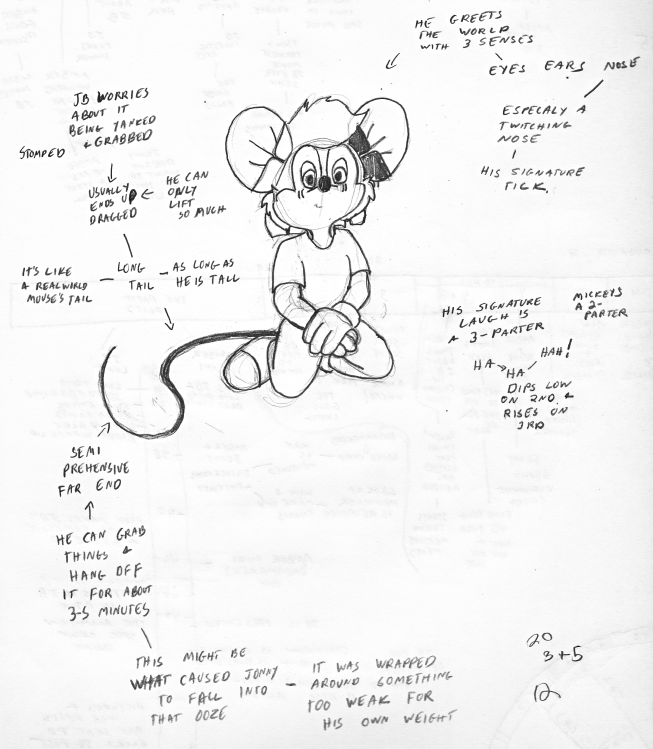 HE GREETS
THE WORLD
WITH 3 SENSES
EYES EARS NOSE
ESPECIALY A
TWITCHING
NOSE
HIS SIGNATURE
TICK.
JB WORRIES
ABOUT IT
BEING YANKED
STOMPED & GRABBED
USUALLY
ENDS UP
DRAGGED
HE CAN
ONLY
LIFT
SO MUCH
IT'S LIKE
A REALWORLD
MOUSE'S TAIL
LONG
TAIL
AS LONG AS
HE IS TALL
HIS SIGNATURE
LAUGH IS
A 3-PARTER
MICKEYS
A 2-
PARTER
HA HA HAH!
DIPS LOW
ON 2ND &
RISES ON
3RD
SEMI
PREHENSIVE
FAR END
HE CAN GRAB
THINGS &
HANG OFF
IT FOR ABOUT
3-5 MINUTES
THIS MIGHT BE
WHAT CAUSED JONNY
TO FALL INTO
THAT OOZE
IT WAS WRAPPED
AROUND SOMETHING
TOO WEAK FOR
HIS OWN WEIGHT
20
3+5
12